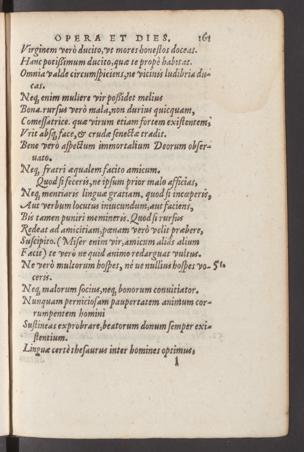 OPERA ET DIES. 161
Virginem verò ducito, vt mores honestos doceas.
Hanc potissimum ducito, quæ te propè habitat.
Omnia valde circumspiciens, ne vicinis ludibria du-
cas.
Neq, enim muliere vir possidet melius
Bona. rursus verò mala, non durius quicquam,
Comessatrice. quæ virum etiam fortem existentem,
Vrit absq, face, & crudæ senectæ tradit.
Bene verò aspectum immortalium Deorum obser-
uato.
Neq, fratri æqualem facito amicum.
Quod si feceris, ne ipsum prior malo afficias,
Neq, mentiaris linguæ gratiam, quod si incœperis,
Aut verbum locutus iniucundum, aut faciens,
Bis tamen puniri memineris. Quod si rursus
Redeat ad amicitiam, pœnam verò velit præbere,
Suscipito. (Miser enim vir, amicum aliàs alium
Facit) te verò ne quid animo redarguat vultus.
Ne verò multorum hospes, nè ue nullius hospes vo-
ceris.
Neq, malorum socius, neq, bonorum conuitiator.
Nunquam perniciosam paupertatem animum cor-
rumpentem homini
Sustineas exprobrare, beatorum donum semper exi-
stentium.
Linguæ certè thesaurus inter homines optimus,